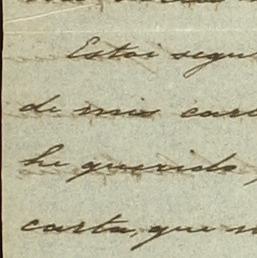 Estoi segu
de mis cart
he querido,
carta, que n